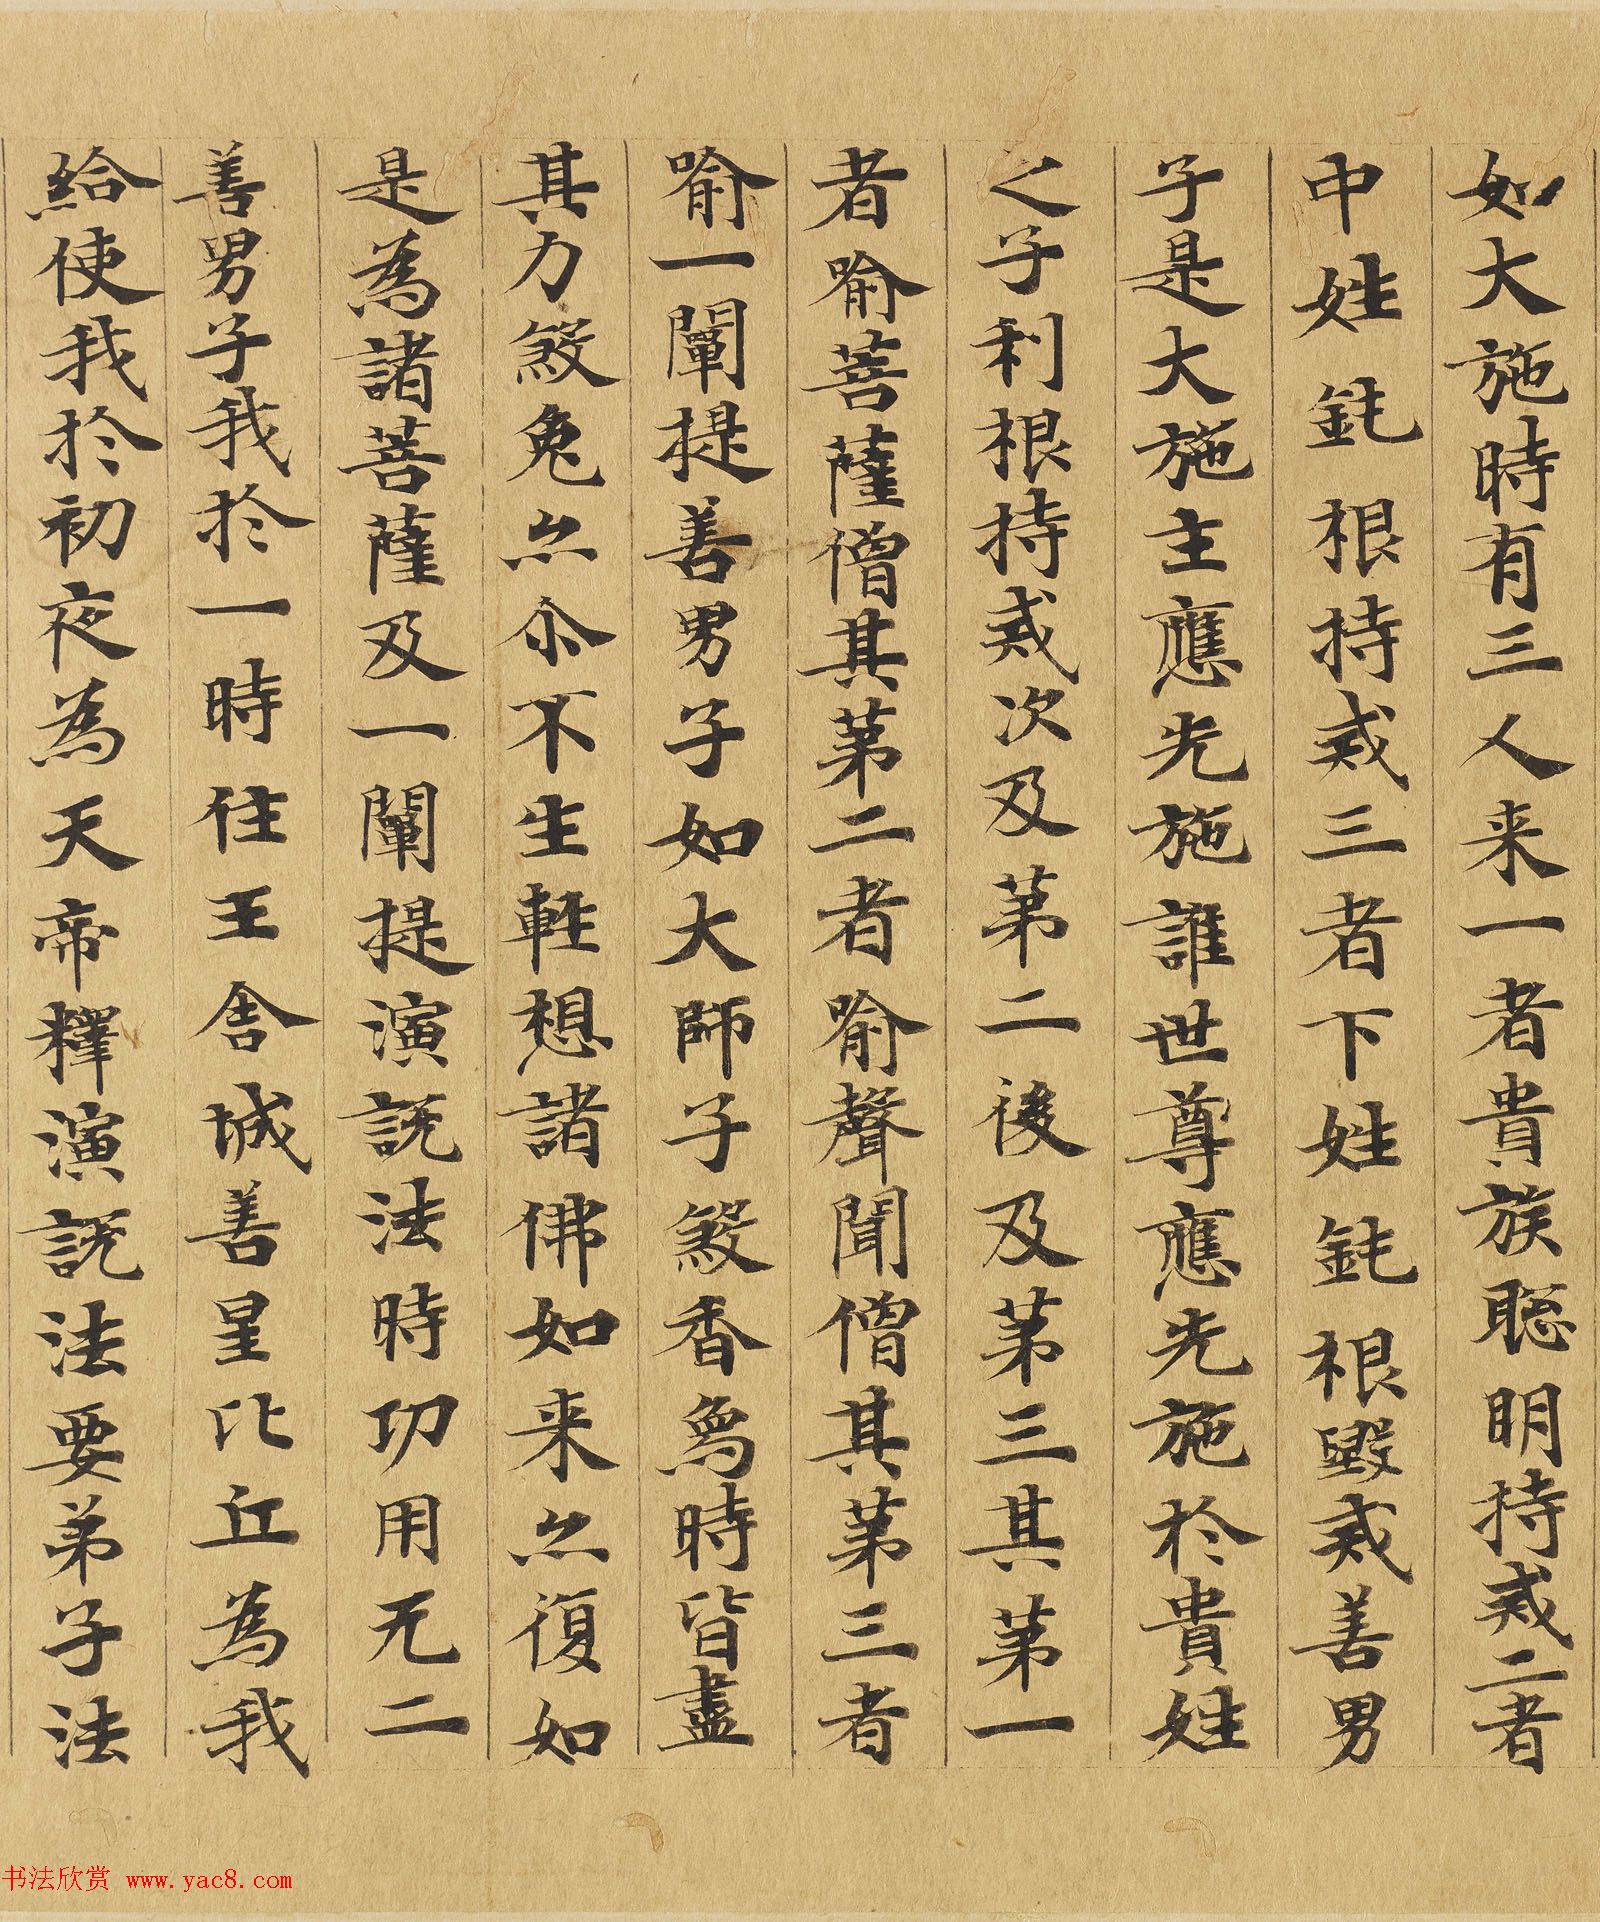 如大施時有三人来一者貴族聡明持戒二者
中姓鈍根持戒三者下姓鈍根毀戒善男
子是大施主應先施誰世尊應先施於貴姓
之子利根持戒次及苐二後及苐三其苐一
者喻菩薩僧其苐二者喻聲聞僧其苐三者
喻一闡提善男子如大師子煞香鳥時皆盡
其力煞兔亦尒不生輕想諸佛如来亦復如
是為諸菩薩及一闡提演說法時功用无二
善男子我於一時住王舍城善星比丘為我
給使我於初夜為天帝釋演說法要弟子法
书法欣赏 www.yac8.com